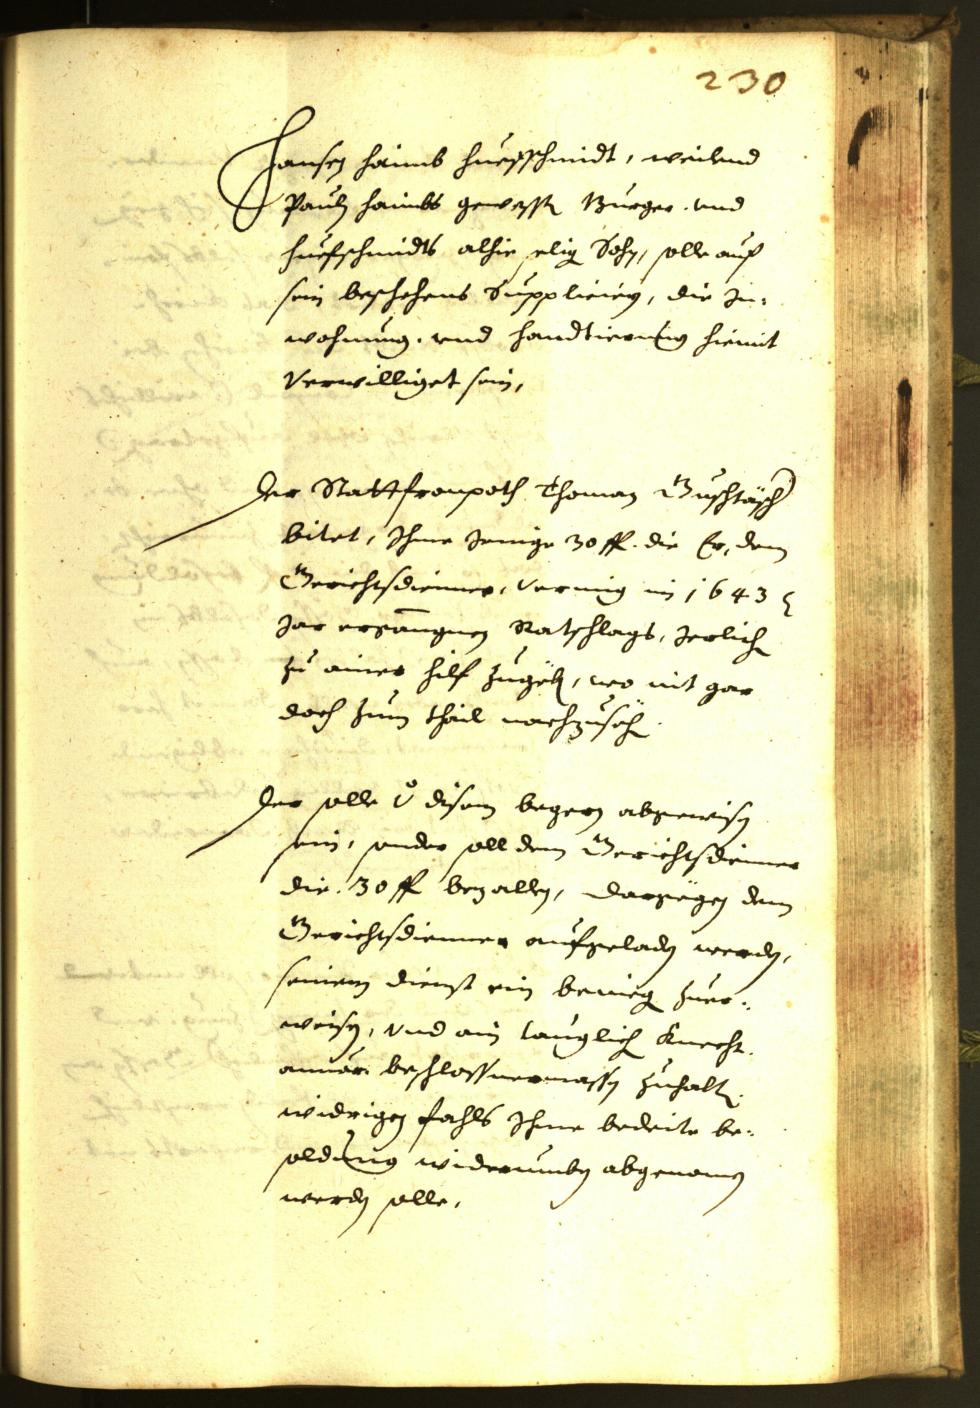 230
Hansen Haimb Huefschmidt, weilend
Pauln Haimbs gewesten Burger und
Huefschmidts alhie elig Sohn, solle auf
sein beschehens Suppliciern, die In-
wohnung, und Handtierung hiemit
verwilliget sein,
Der Stattfronpoth Thoman
bitet, Ihme Jenige 30 ff. die Er, dem
Gerichtsdienner, vermig im 1643
Jar ergangnen Ratschlags, Jerlich
zu ainer hilf zugeben, wo nit gar
doch zum thail nachzusehen.
Der solle disem begern abgewisen
sein, sonder soll dem Gerichtsdienner
die 30 ff bezallen, dargegen dem
Gerichtsdienner aufgeladen werden,
seinem dienst ein beniegen zuer-
weisen, und ain tauglich Knecht
beschlossnermassen zuhalten.
widrigen fahls Ihme bedeite be-
soldung widerumben abgenomen
werden solle,